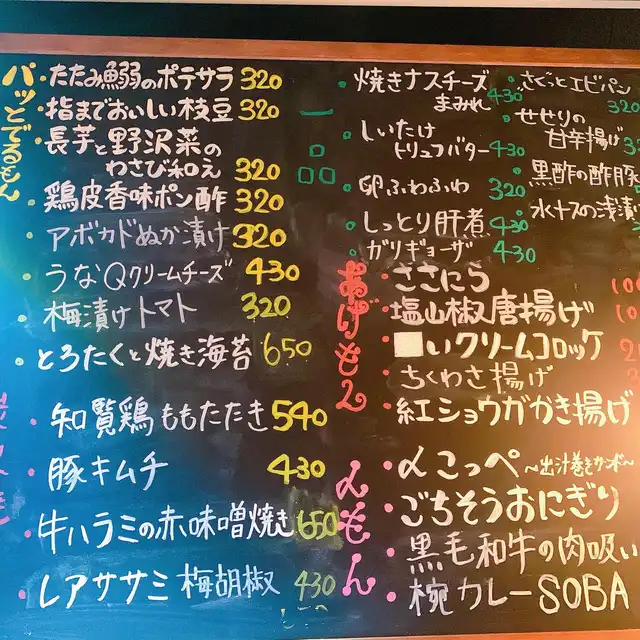 パッとでるもん
たたみ鰯のポテサラ 320
指までおいしい枝豆 320
長芋と野沢菜の
わさび和え 320
鶏皮香味ポン酢 320
アボカドぬか漬け 320
うなQクリームチーズ 430
梅漬けトマト 320
とろたくと焼き海苔 650
知覧鶏ももたたき 540
豚キムチ 430
牛ハラミの赤味噌焼き 650
レアササミ梅胡椒 430
一品
焼きナスチーズ
まみれ 430
しいたけ
トリュフバター 430
卵ふわふわ 320
しっとり肝煮 430
ガリギョーザ 430
さくっとエビパン 320
せせりの
甘辛揚げ
黒酢の酢豚
水ナスの浅漬
あげもん
ささにら
塩山椒唐揚げ
いクリームコロッケ
ちくわさ揚げ
紅ショウガかき揚げ
〆もん
〆こっぺ ~出汁巻きカツボ~
ごちそうおにぎり
黒毛和牛の肉吸い
椀カレーSOBA